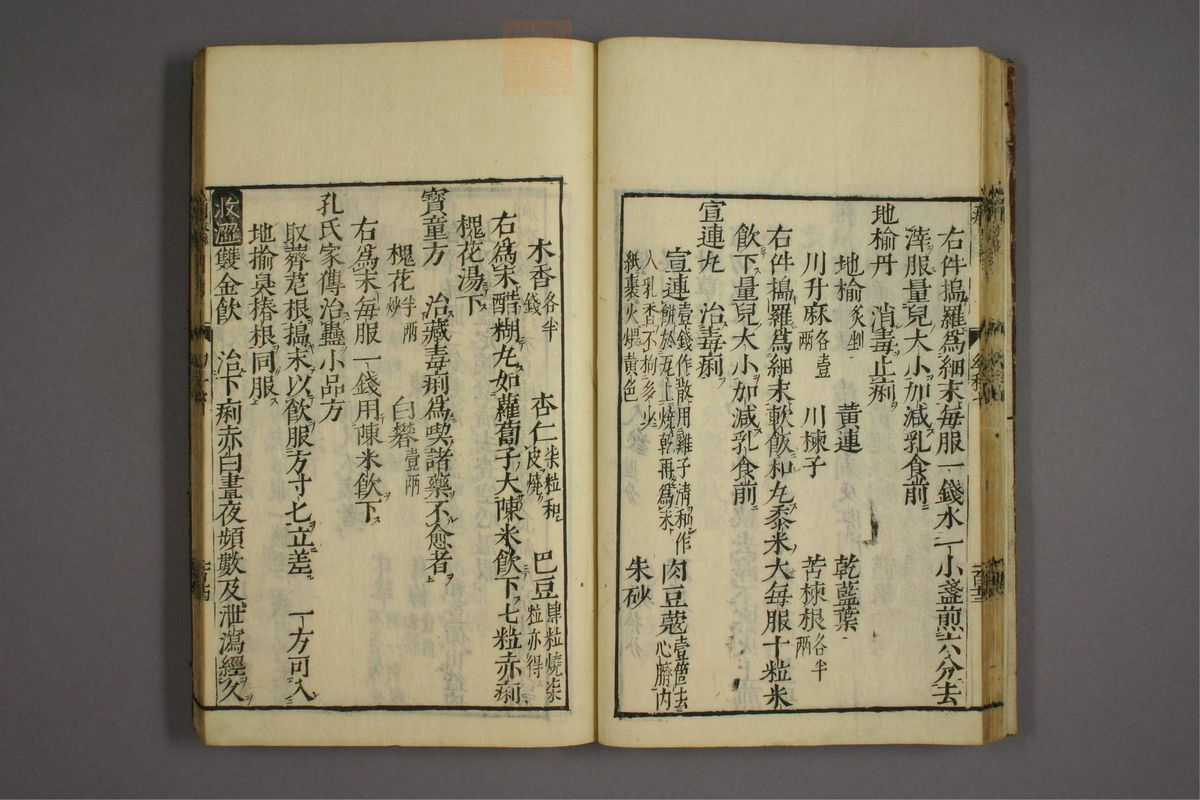 右件搗羅爲細末每服一錢水一小盞煎六分去
滓服量兒大小加減乳食前
地榆丹　消毒止痢
地榆炙剉　黃連　乾藍葉
川升麻各壹兩　川楝子　苦楝根各半兩
右件搗羅爲細末軟飯和丸黍米大每服十粒米
飲下量兒大小加減乳食前
宣連丸　治毒痢
宣連壹錢作散用雞子淸和作餠於瓦上燒乾再爲末　肉豆蔲壹箇去心臍内
入乳香不拘多少紙裹火煨黄色　朱砂
木香各半錢　杏仁柒粒和皮燒　巴豆肆粒燒柒粒亦得
右爲末醋糊丸如蘿蔔子大陳米飲下七粒赤痢
槐花湯下
寶童方　治藏毒痢爲喫諸藥不愈者
槐花半兩炒　白礬壹兩
右爲末每服一錢用陳米飲下
孔氏家傳治蠱小品方
取薺苨根搗末以飲服方寸匕立差　一方可入
地揄㕠椿根同服
收澀雙金飲　治下痢赤白晝夜頻數及泄瀉經久